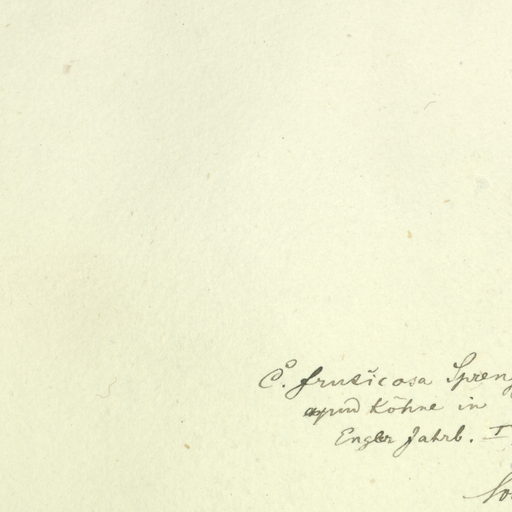 C. fruticosa Spreng
apud Köhne in
Engler Jahrb. I